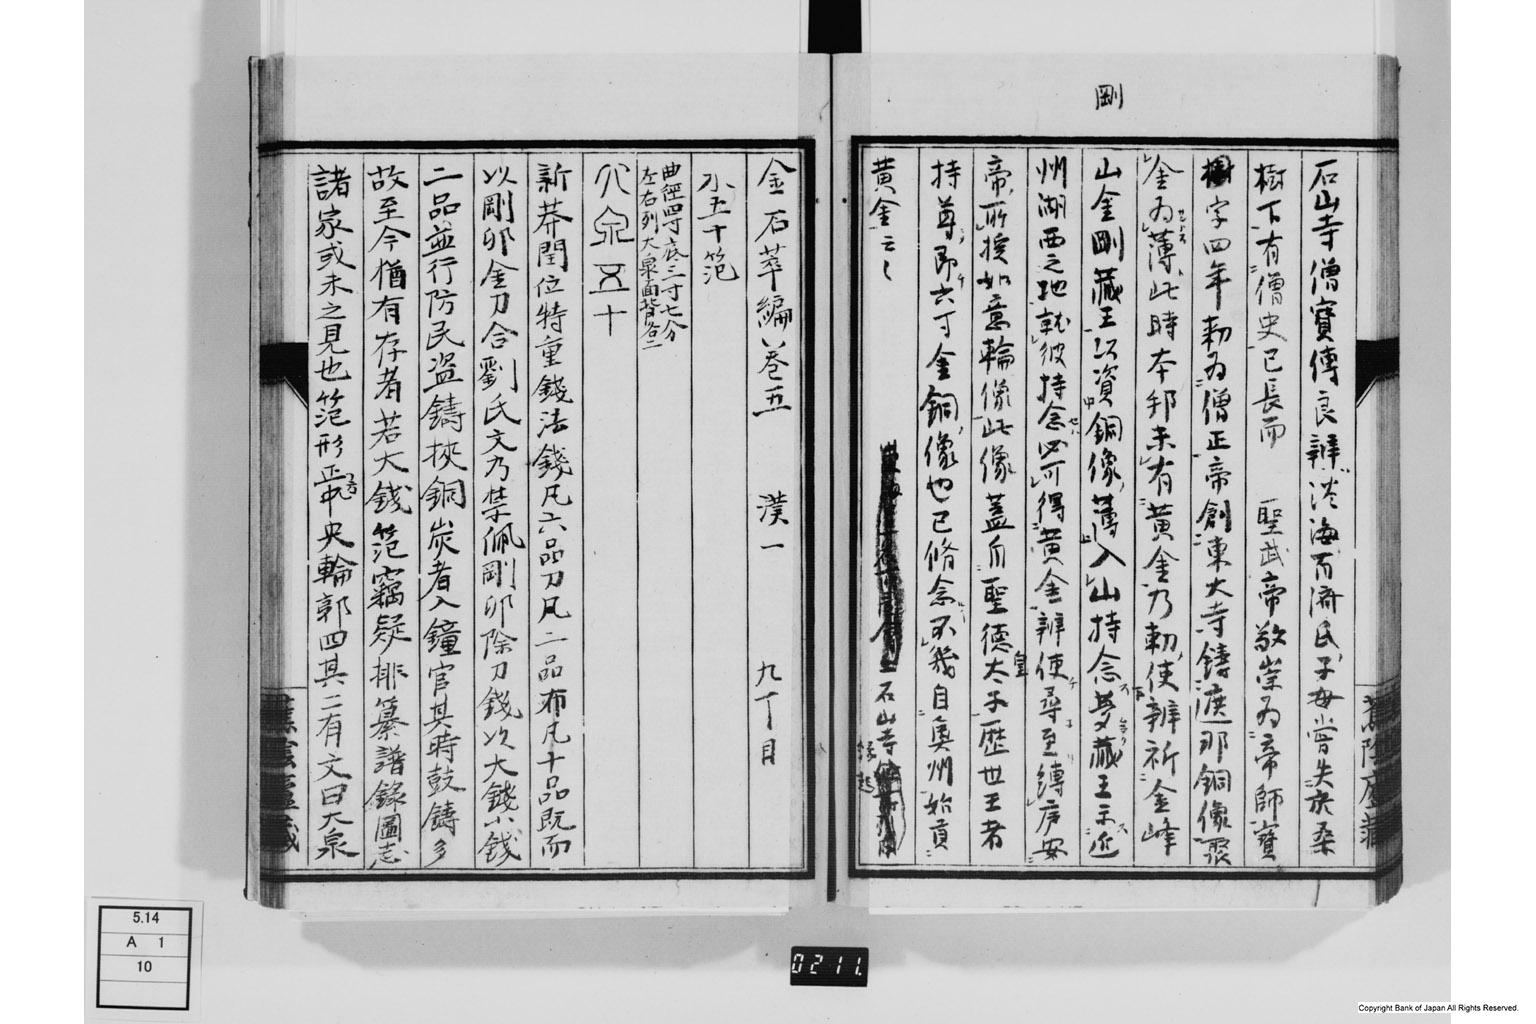 剛
石山寺僧寶傳良辨淡海百濟氏子母嘗失於桑
樹下有僧史已長而 聖武帝敬崇為帝師寶
字四年勅為僧正帝創東大寺鑄遮那銅像聚
金為薄此時本邦未有黃金乃勅使辨祈金峰
山金剛藏王以資銅像薄入山持念夢藏王示近
州湖西之地就彼持念必可得黃金辨使尋至縛庐安
帝所授如意輪像此像蓋自聖德太子歷世王者
持尊即六寸金銅像也已脩念不幾自奧州始貢
黃金云々
石山寺
縁起
金石萃編卷五 漢一 九丁目
小五十範
曲徑四寸底三寸七分
左右列大泉面背各二
大泉五十
新莽閏位特重錢法錢凡六品刀凡二品布凡十品既而
以剛卯金刀合劉氏文乃禁佩剛卯除刀錢以大錢小錢
二品並行防民盜鑄挾銅炭者入鐘官其時鼓鑄多
故至今猶有存者若大錢范竊疑排纂譜錄圖志
諸家或未之見也范形正方中央輪郭四其二有文曰大泉
5.14
A 1
10
0211.
Copyright Bank of Japan All Rights Reserved.